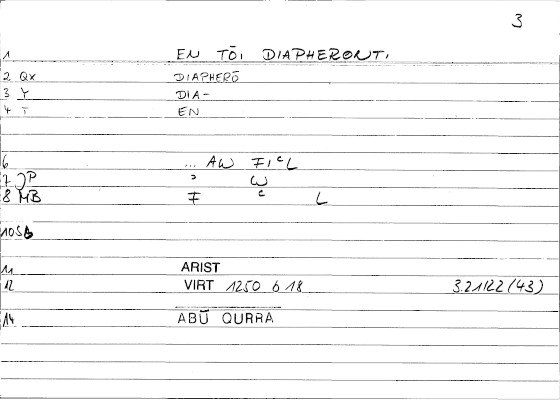 3
1 EN TŌI DIAPHERONTI
2 Qx DIAPHERŌ
3 Y DIA-
4 T EN
6 ... AW FIᶜL
7 JP ᵓ W
8 MB F ᶜ L
10 Sb
11 ARIST
12 VIRT 1250 b 18 3.21/22 (43)
14 ABŪ QURRA